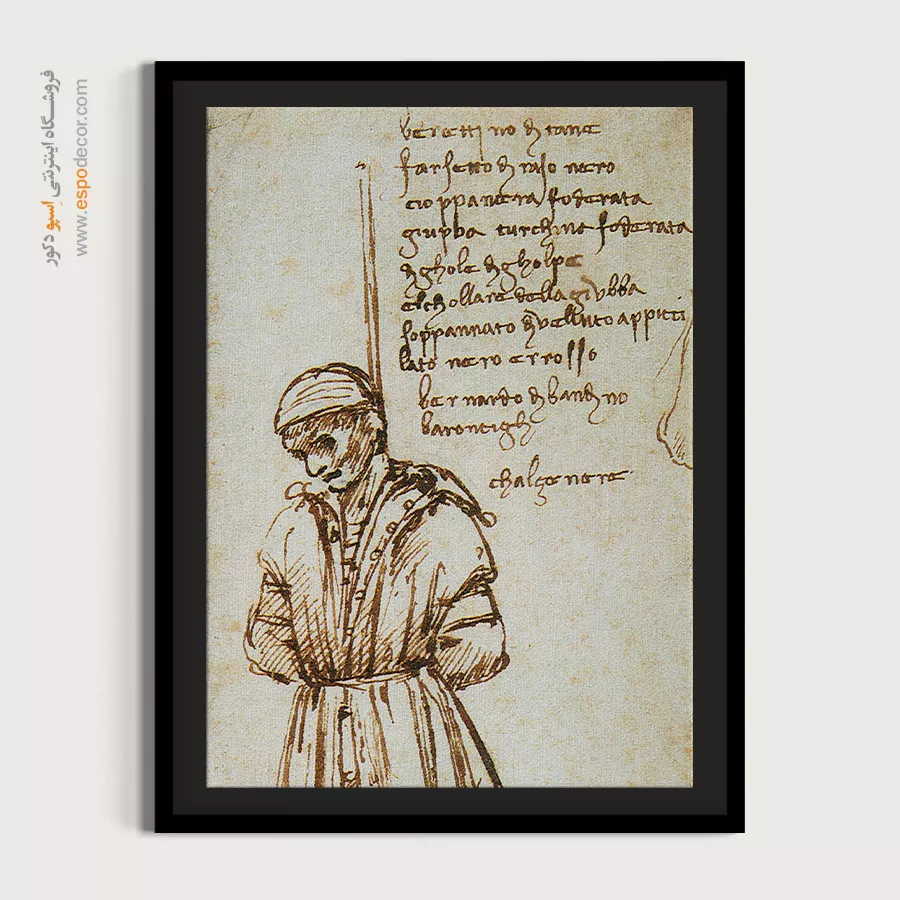 فروشگاه اینترنتی اِسپو دکور
www.espodecor.com
berettino di tane
farsetto di raso nero
cioppa nera foderata
giubba turchina foderata
di ghole di gholpe
el chollare della giubba
soppannato di velluto appicci
lato nero e rosso
bernardo di bandino
barontigli
chalze nere